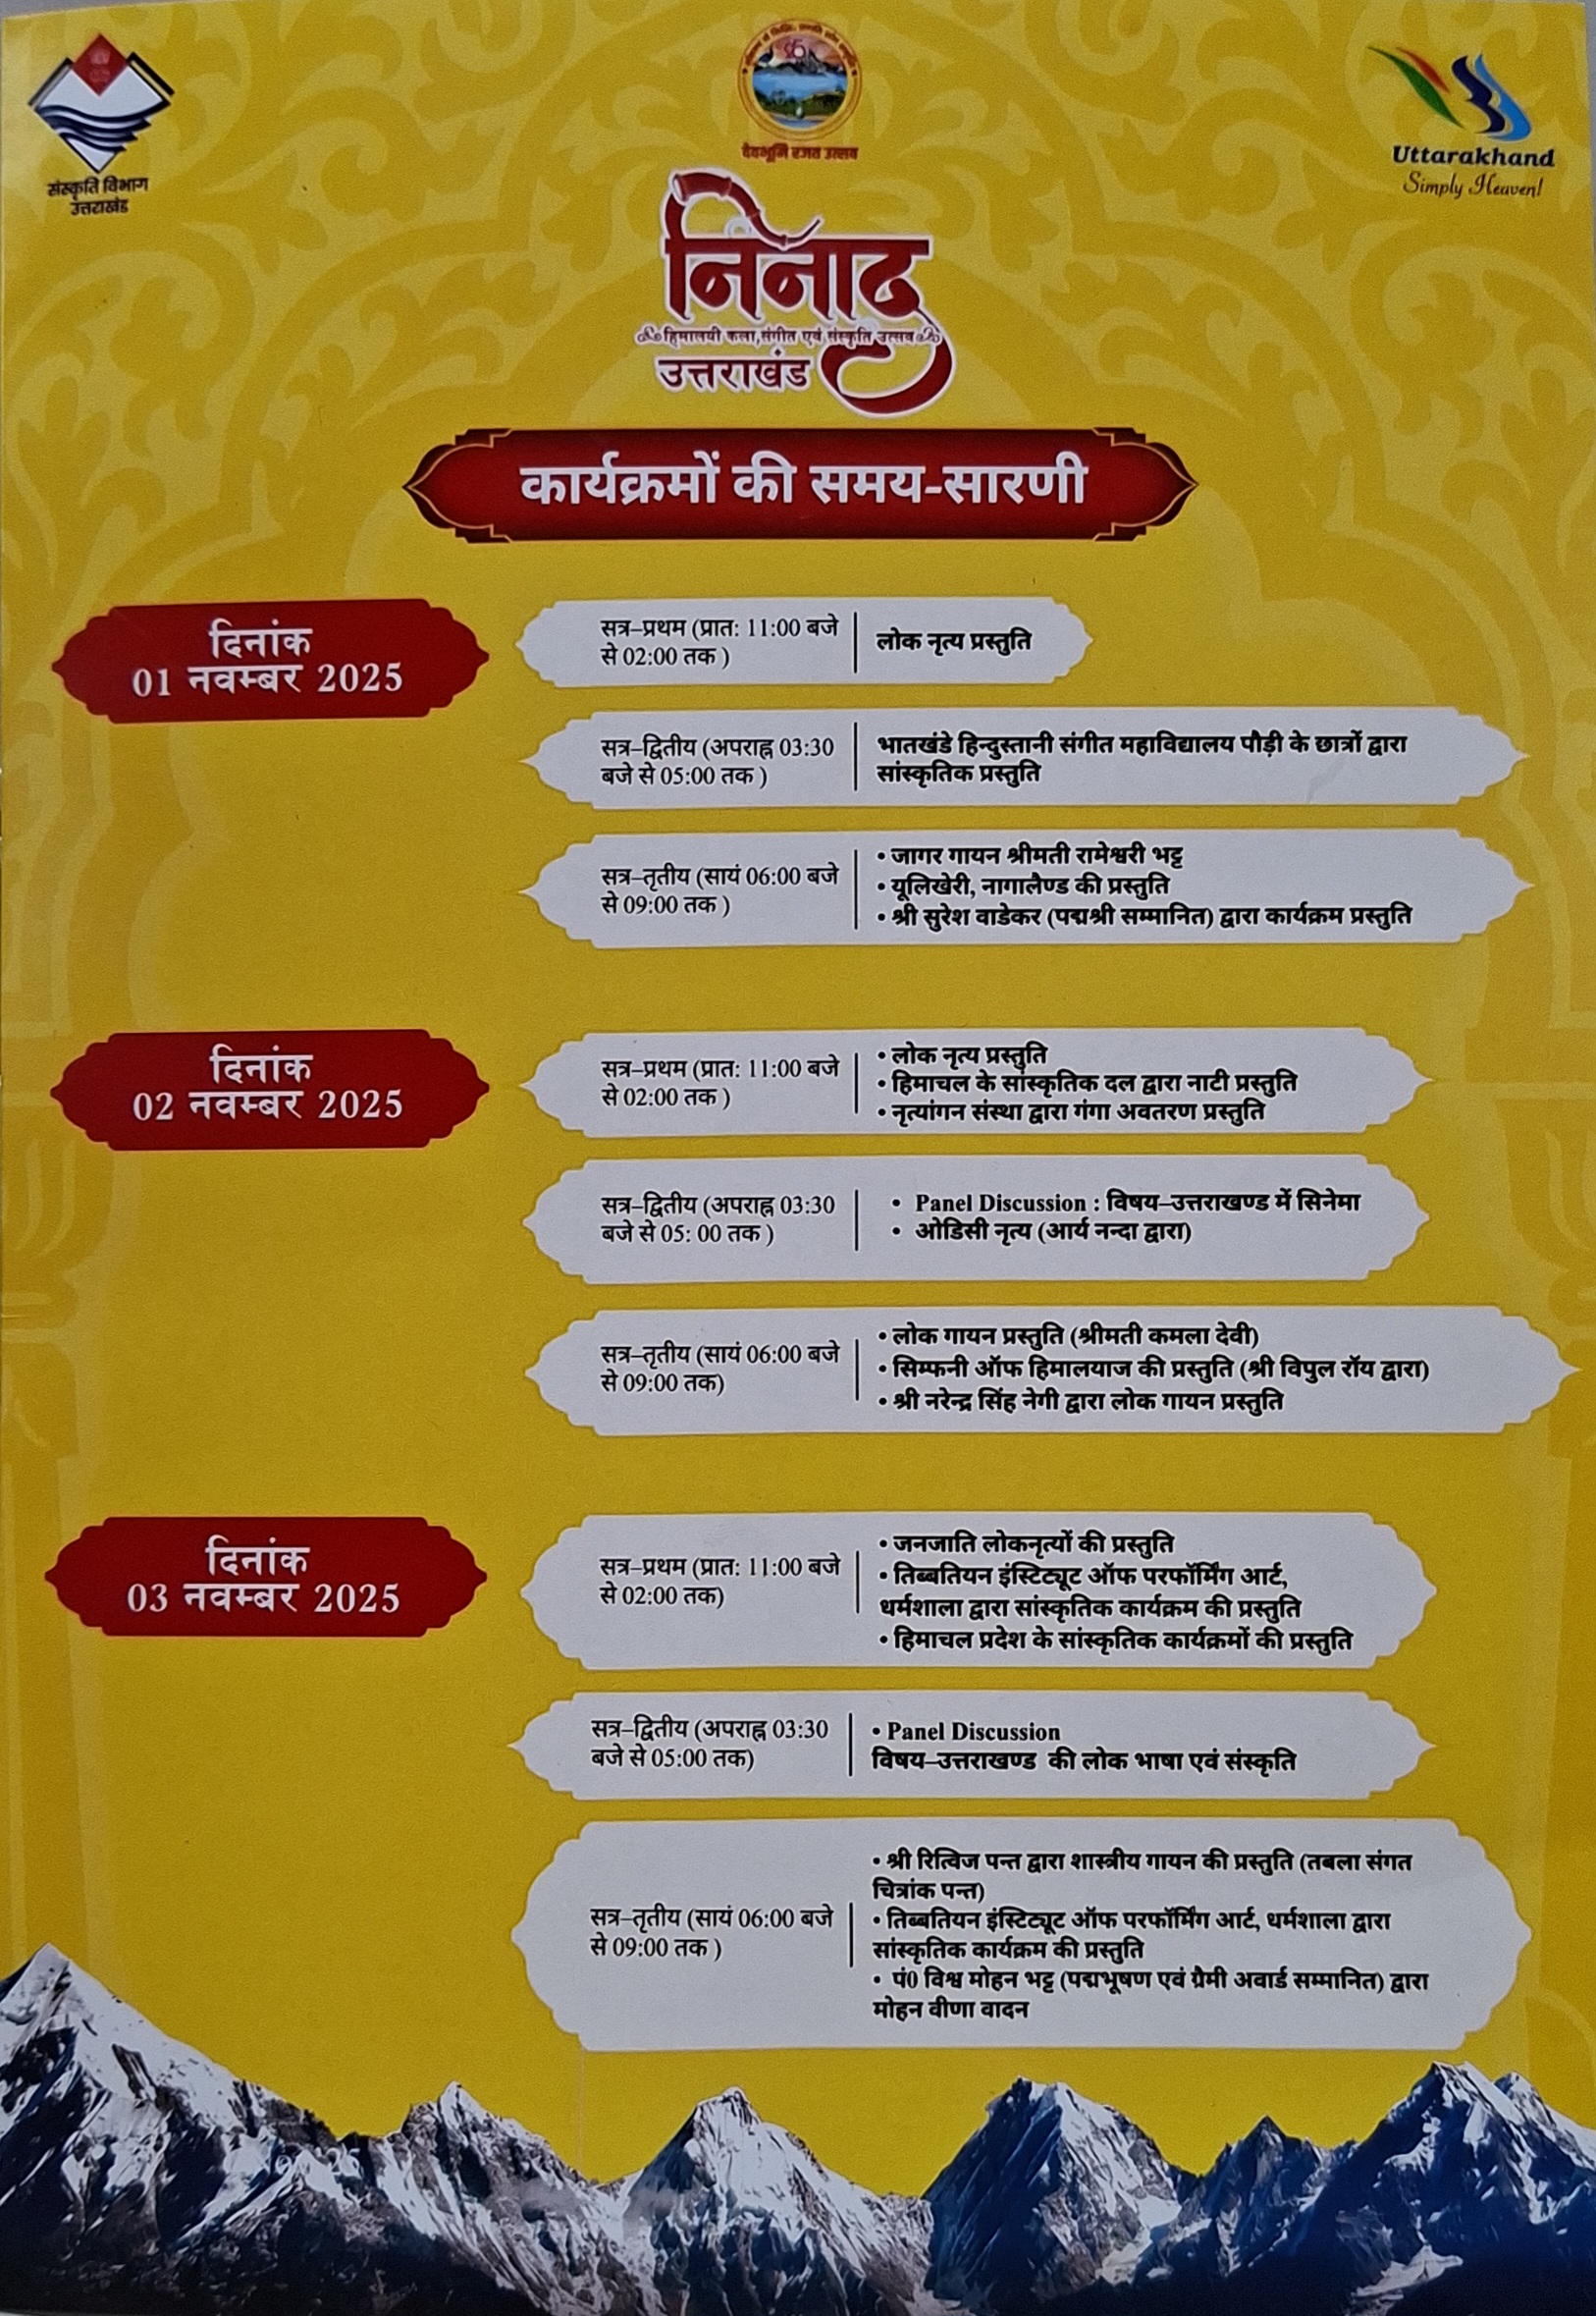 संस्कृति विभाग
उत्तराखंड
देवभूमि रजत उत्सव
Uttarakhand
Simply Heaven!
निनाद
हिमालयी कला, संगीत एवं संस्कृति उत्सव
उत्तराखंड
कार्यक्रमों की समय-सारणी
दिनांक
01 नवम्बर 2025
सत्र–प्रथम (प्रात: 11:00 बजे
से 02:00 तक )
लोक नृत्य प्रस्तुति
सत्र–द्वितीय (अपराह्न 03:30
बजे से 05:00 तक )
भातखंडे हिन्दुस्तानी संगीत महाविद्यालय पौड़ी के छात्रों द्वारा
सांस्कृतिक प्रस्तुति
सत्र–तृतीय (सायं 06:00 बजे
से 09:00 तक )
• जागर गायन श्रीमती रामेश्वरी भट्ट
• यूलिखेरी, नागालैण्ड की प्रस्तुति
• श्री सुरेश वाडेकर (पद्मश्री सम्मानित) द्वारा कार्यक्रम प्रस्तुति
दिनांक
02 नवम्बर 2025
सत्र–प्रथम (प्रात: 11:00 बजे
से 02:00 तक )
• लोक नृत्य प्रस्तुति
• हिमाचल के सांस्कृतिक दल द्वारा नाटी प्रस्तुति
• नृत्यांगन संस्था द्वारा गंगा अवतरण प्रस्तुति
सत्र–द्वितीय (अपराह्न 03:30
बजे से 05: 00 तक )
• Panel Discussion : विषय–उत्तराखण्ड में सिनेमा
• ओडिसी नृत्य (आर्य नन्दा द्वारा)
सत्र–तृतीय (सायं 06:00 बजे
से 09:00 तक)
• लोक गायन प्रस्तुति (श्रीमती कमला देवी)
• सिम्फनी ऑफ हिमालयाज की प्रस्तुति (श्री विपुल रॉय द्वारा)
• श्री नरेन्द्र सिंह नेगी द्वारा लोक गायन प्रस्तुति
दिनांक
03 नवम्बर 2025
सत्र–प्रथम (प्रात: 11:00 बजे
से 02:00 तक)
• जनजाति लोकनृत्यों की प्रस्तुति
• तिब्बतियन इंस्टिट्यूट ऑफ परफॉर्मिंग आर्ट,
धर्मशाला द्वारा सांस्कृतिक कार्यक्रम की प्रस्तुति
• हिमाचल प्रदेश के सांस्कृतिक कार्यक्रमों की प्रस्तुति
सत्र–द्वितीय (अपराह्न 03:30
बजे से 05:00 तक)
• Panel Discussion
विषय–उत्तराखण्ड की लोक भाषा एवं संस्कृति
सत्र–तृतीय (सायं 06:00 बजे
से 09:00 तक )
• श्री रित्विज पन्त द्वारा शास्त्रीय गायन की प्रस्तुति (तबला संगत
चित्रांक पन्त)
• तिब्बतियन इंस्टिट्यूट ऑफ परफॉर्मिंग आर्ट, धर्मशाला द्वारा
सांस्कृतिक कार्यक्रम की प्रस्तुति
• पं0 विश्व मोहन भट्ट (पद्मभूषण एवं ग्रैमी अवार्ड सम्मानित) द्वारा
मोहन वीणा वादन